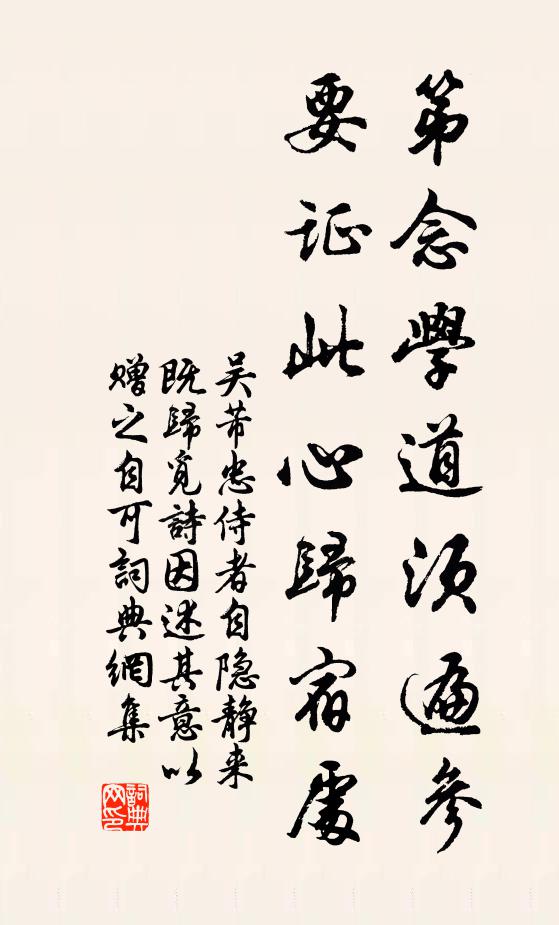 第念學道須遍參
要证此心歸宿處
吴芾忠侍者自隐靜来
既歸覓詩因述其意以
赠之自可詞典網集
詞典网印